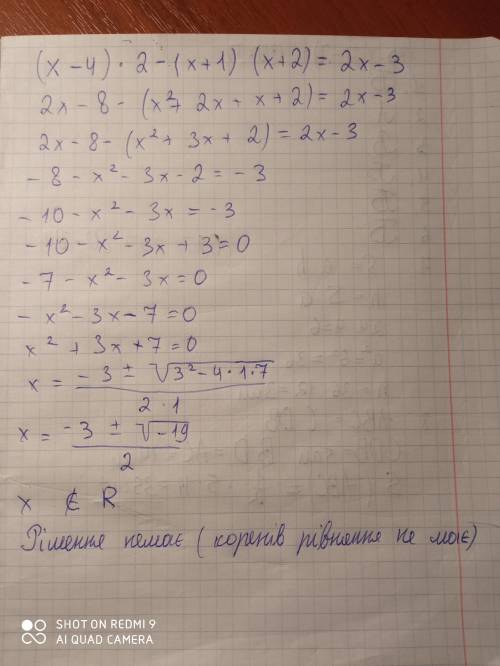 (x-4)·2-(x+1) (x+2)=2x-3
2x-8-(x²+2x+x+2)=2x-3
2x-8-(x²+3x+2)=2x-3
-8-x²-3x-2=-3
-10-x²-3x=-3
-10-x²-3x+3=0
-7-x²-3x=0
-x²-3x-7=0
x²+3x+7=0
x = (-3 ± √(3²-4·1·7)) / (2·1)
x = (-3 ± √(-19)) / 2
x ∉ R
Рішення немає (коренів рівняння не має)
SHOT ON REDMI 9
AI QUAD CAMERA